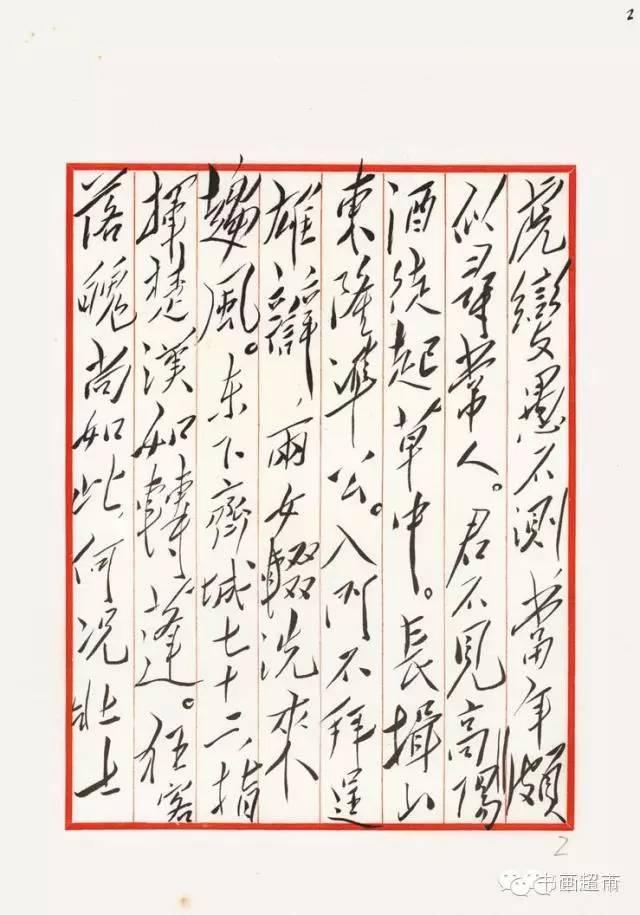 2
虎變愚不測，當年頗
似尋常人。君不見高陽
酒徒起草中。長揖山
東隆準公。入门不拜逞
雄辯，兩女輟洗來
趨風。东下齊城七十二，指
揮楚漢如轉蓬。狂客
落魄尚如此，何况壯士
2
书画超市